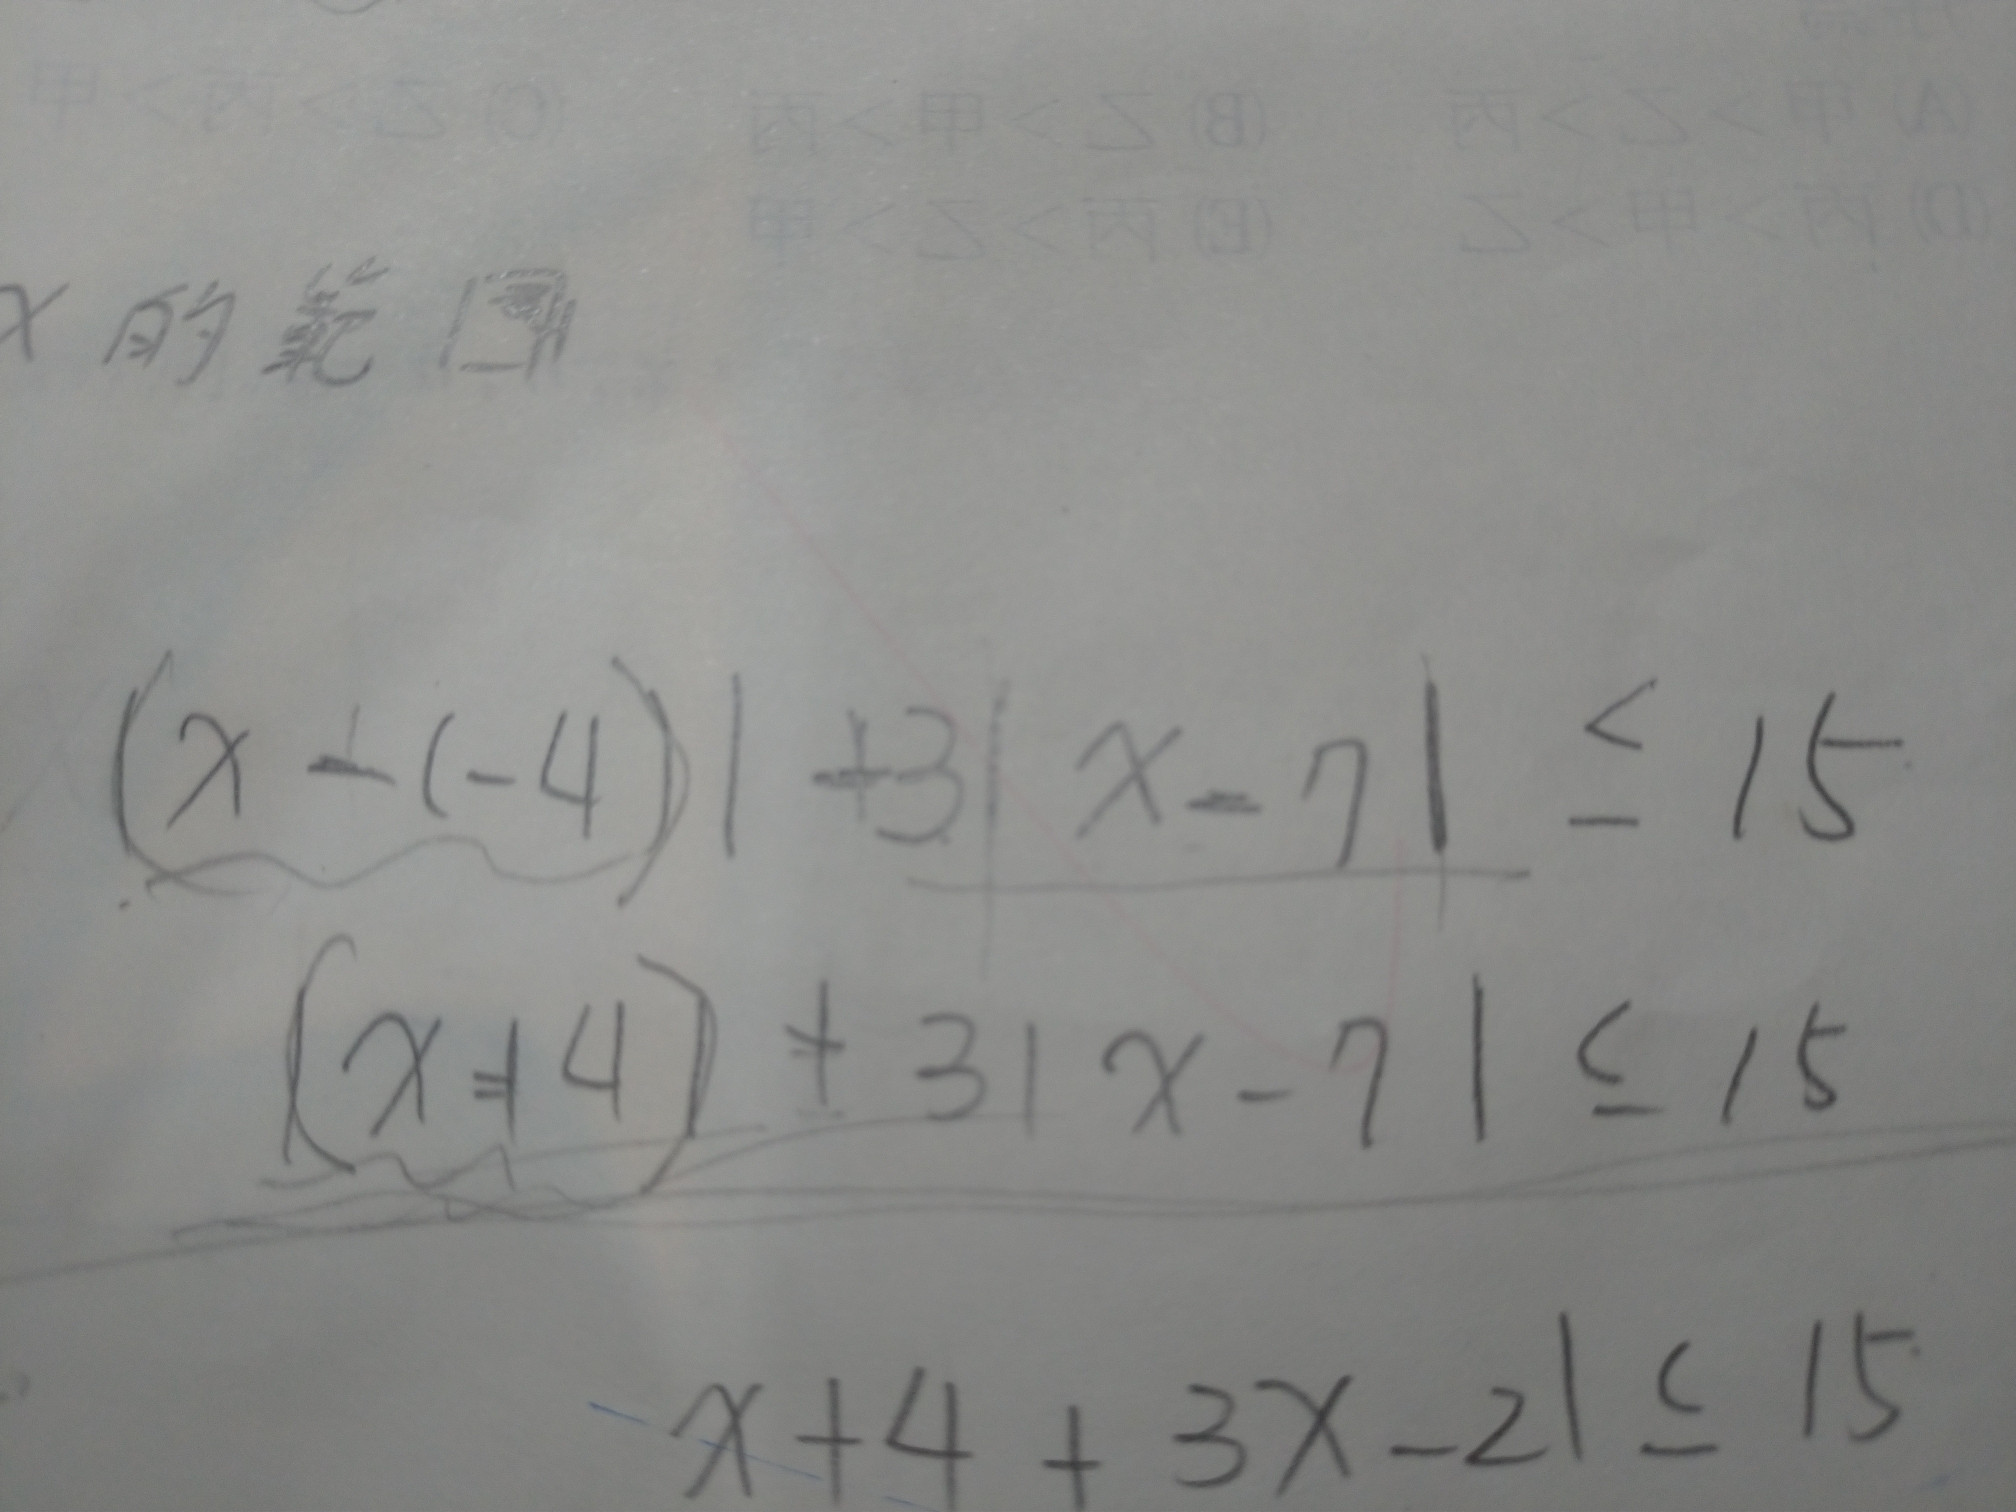 x 的範囲
(x-(-4))|+3|x-7|≤15
(x+4)+3|x-7|≤15
x+4+3x-21≤15